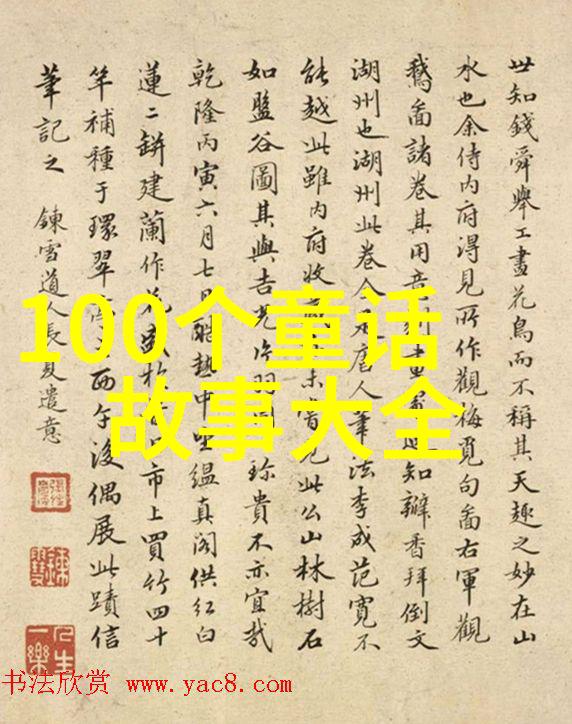 世知錢舜舉工畫花鳥而不稱其天趣之妙在山
水也余侍内府得見所作觀梅覓句啚右軍觀
鵝啚諸卷其用意知辦香拜倒文
湖州也湖州此卷全唐人筆法李成范寬不
能越此雖内府收未嘗見此公山林樹石
如盤谷圖其與吉光片羽珍貴不亦宜哉
乾隆丙寅六月七日酷熱中坐緼真阁供紅白
蓮二缾建蘭作花盛市上買竹四十
竿補種于環翠西午後偶展此蹟信
筆記之 鍊雪道人長夏遣意
人生一樂
100个童话
故事大全
书法欣赏 www.yac8.com